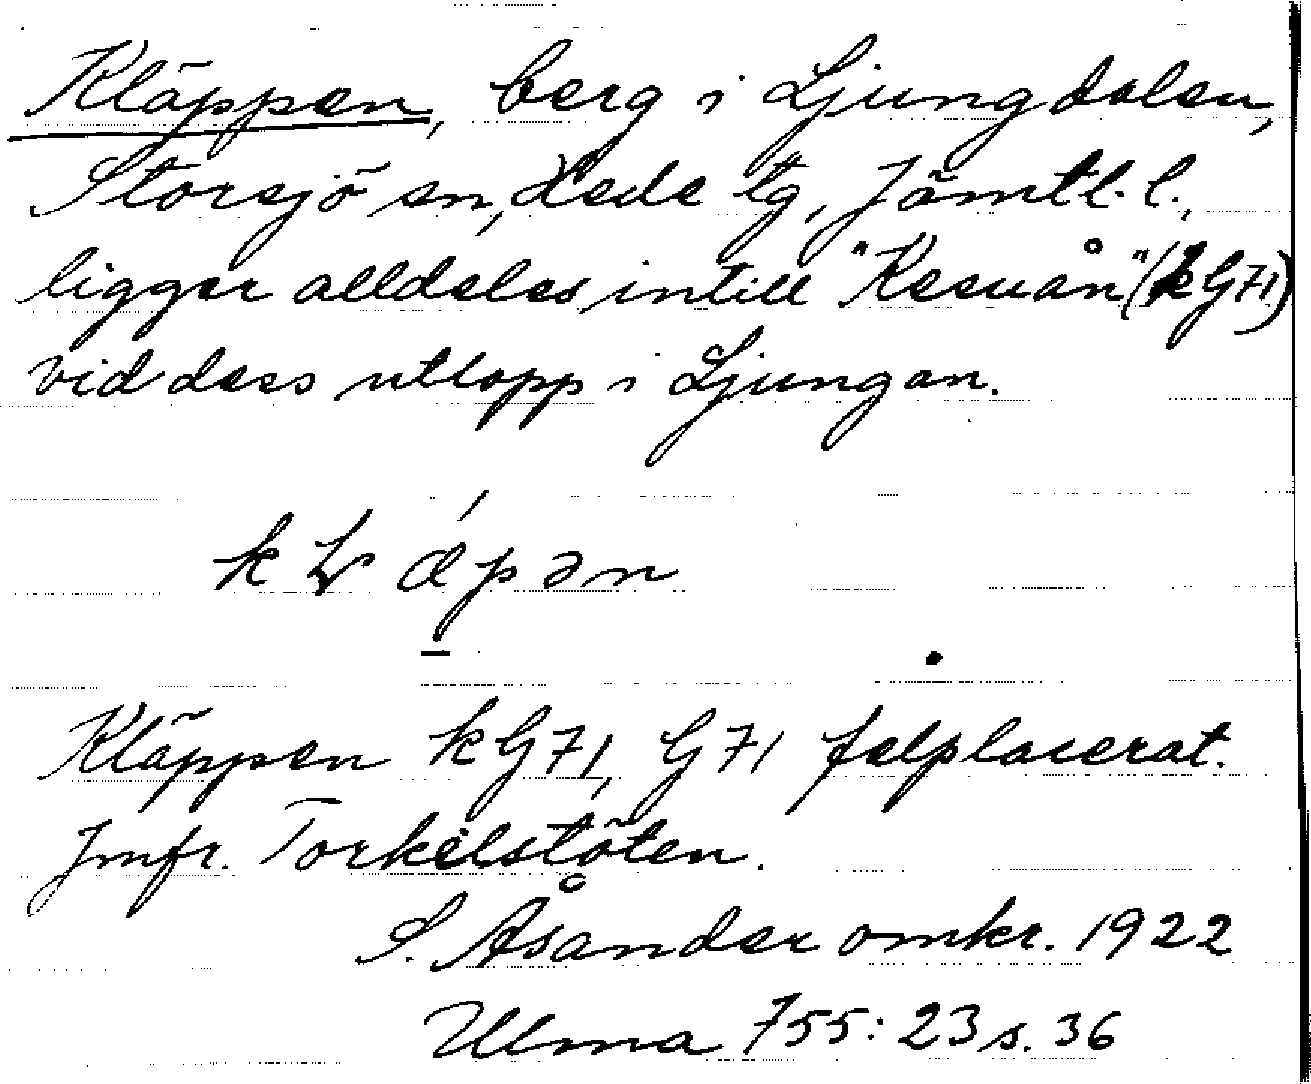 Kläppen, berg i Ljungdalen,
Storsjö sn, Hede tg, Jämtl. l.,
ligger alldeles intill "Kesuån" (kG71)
vid dess utlopp i Ljungan.
Kläppen kG71, G71 felplacerat.
Jmfr. Torkelstöten.
S. Åsander omkr. 1922
Ulma 755:23 s. 36